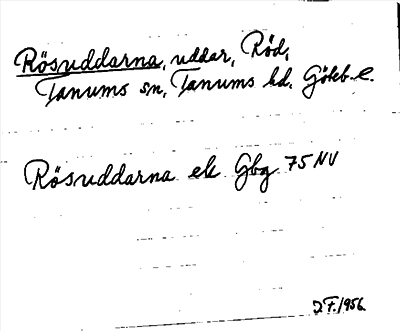 Rösuddarna, uddar, Röd,
Tanums sn, Tanums hd. Göteb. l.
Rösuddarna ek Gbg 75 NV
J.F. 1956.